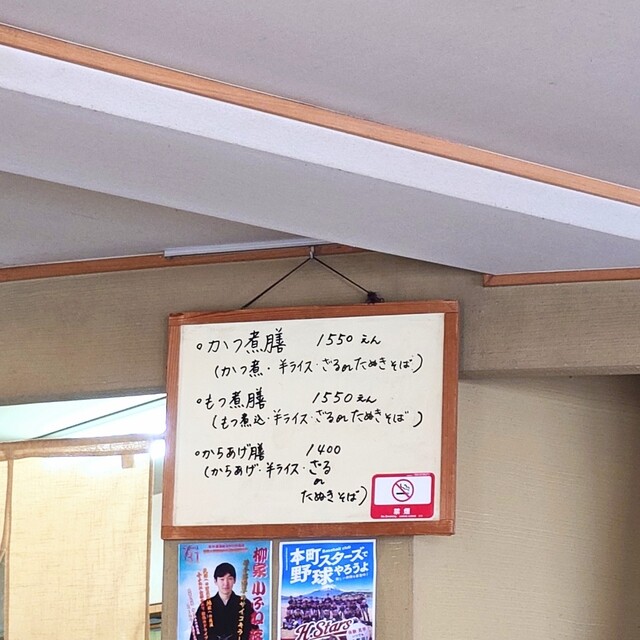 ・かつ煮膳 1550えん
(かつ煮・半ライス・ざるorたぬきそば)
・もつ煮膳 1550えん
(もつ煮込・半ライス・ざるorたぬきそば)
・からあげ膳 1400
(からあげ・半ライス・ざる
or
たぬきそば)
禁煙
柳家
本町スターズで
野球やろうよ
H★Stars